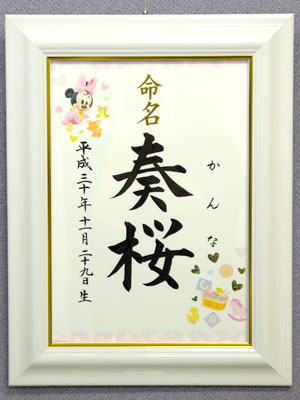 命名
かんな
奏桜
平成三十年十一月二十九日生